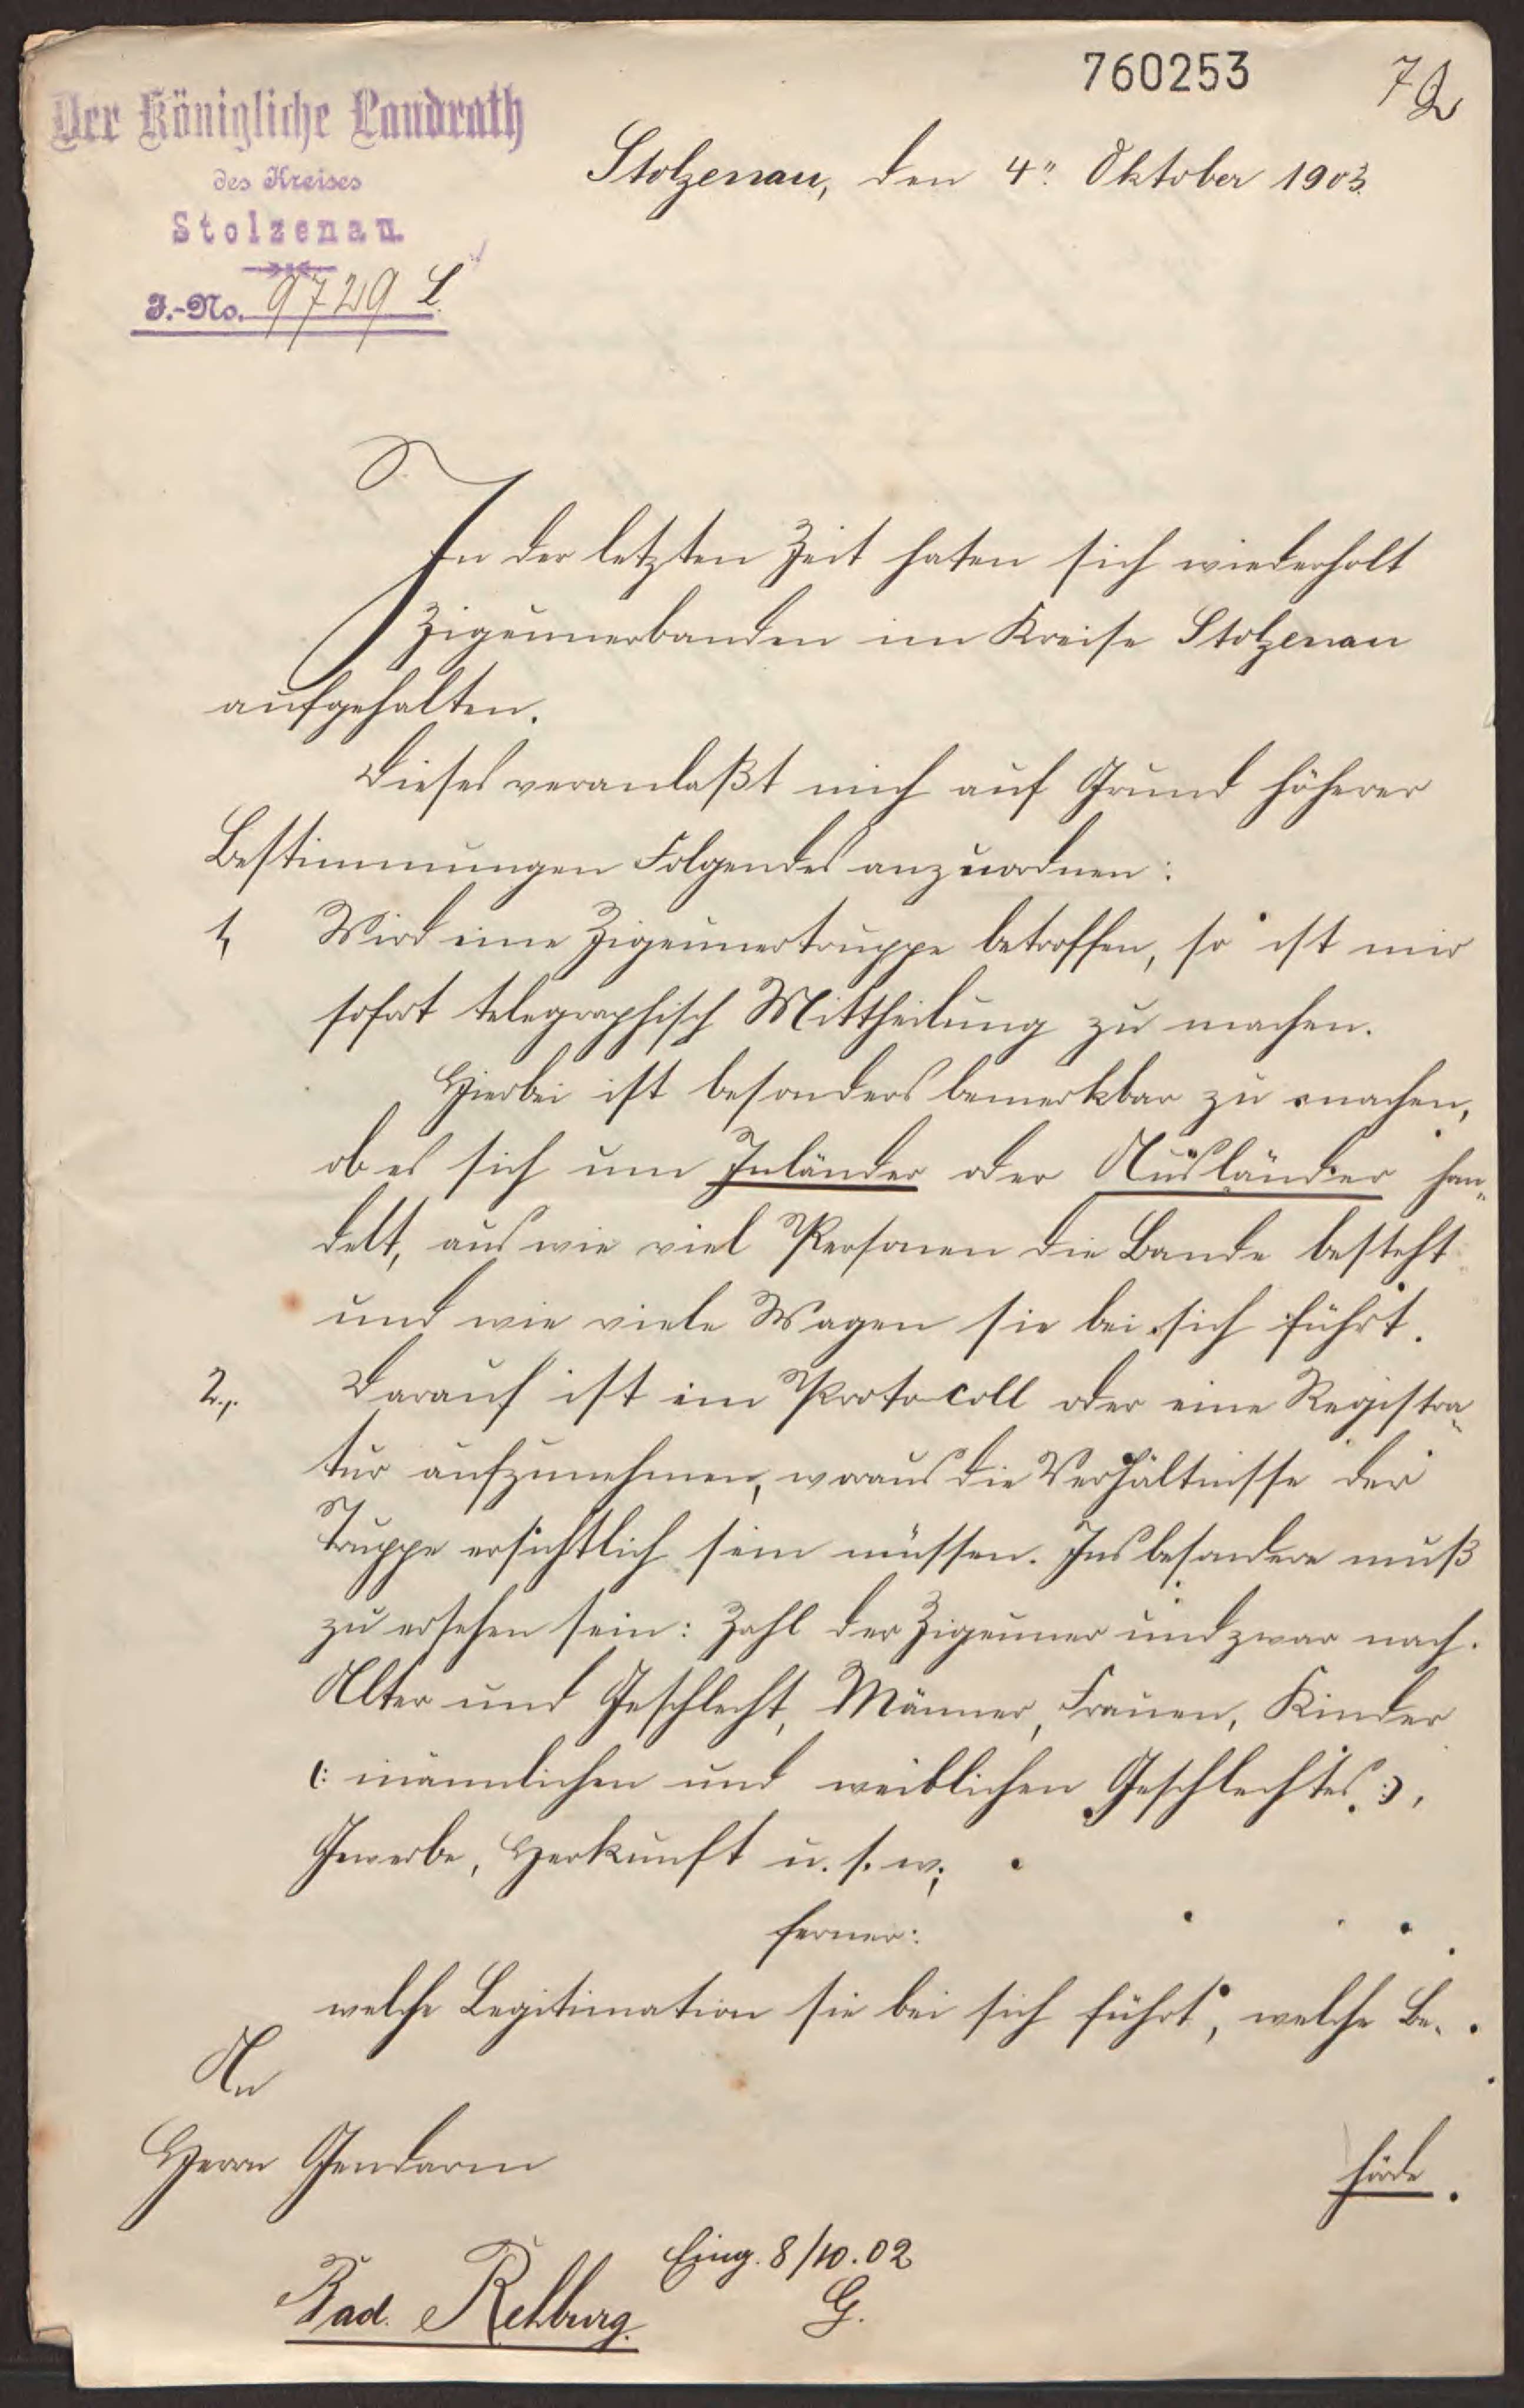 760253
72
Der Königliche Landrath
des Kreises
Stolzenau.
J.-No. 9729 L.
Stolzenau, den 4. Oktober 1903.
In der letzten Zeit haben sich wiederholt
Zigeunerbanden im Kreise Stolzenau
aufgehalten.
Dieses veranlaßt mich auf Grund höherer
Bestimmungen Folgendes anzuordnen:
1, Wird eine Zigeunertruppe betroffen, so ist mir
sofort telegraphisch Mittheilung zu machen.
Hierbei ist besonders bemerkbar zu machen,
ob es sich um Inländer oder Ausländer han„
delt, aus wie viel Personen die Bande besteht
und wie viele Wagen sie bei sich führt.
2., Darauf ist ein Protocoll oder eine Registra„
tur aufzunehmen, woraus die Verhältnisse der
Truppe ersichtlich sein müssen. Insbesondere muß
zu ersehen sein: Zahl der Zigeuner und zwar nach
Alter und Geschlecht, Männer, Frauen, Kinder
(: männlichen und weiblichen Geschlechtes :),
Gewerbe, Herkunft u. s. w;
ferner:
welche Legitimation sie bei sich führt, welche Be-
An
Herrn Gendarm
hörde
Eing. 8/10.02
Bad Rehburg.
G.